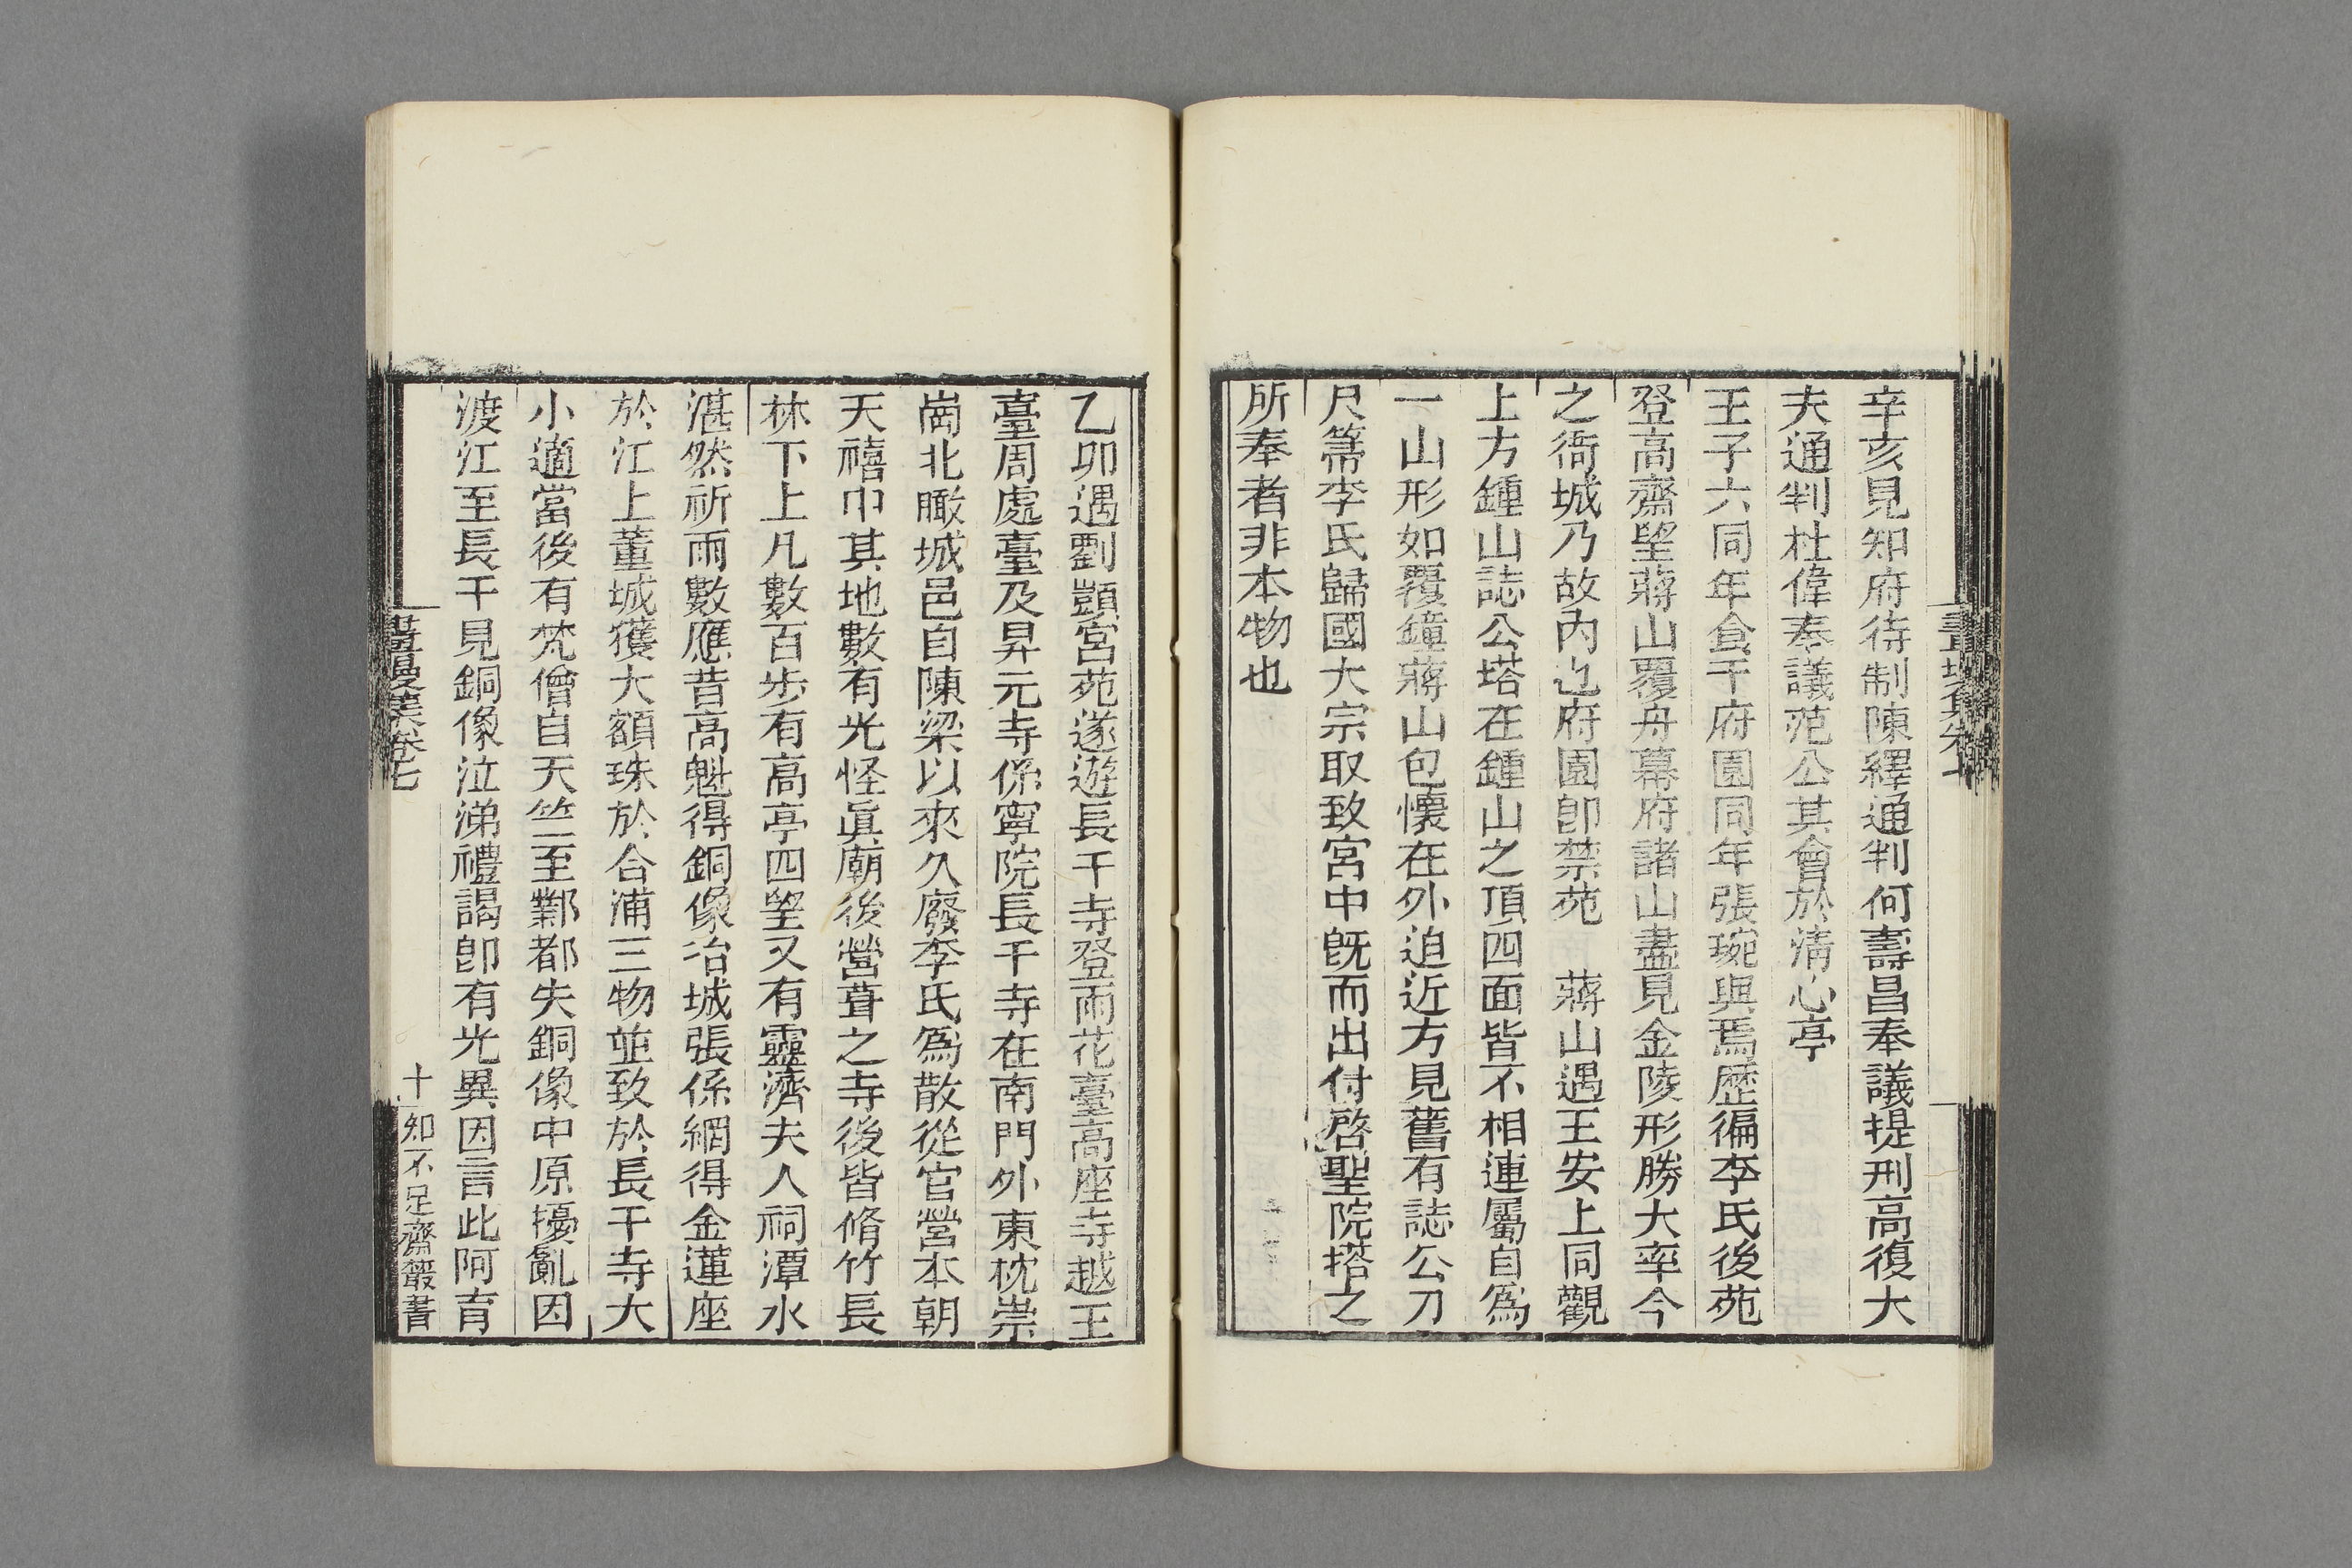 辛亥見知府待制陳繹通判何壽昌奉議提刑高復大
夫通判杜偉奉議范公其會於清心亭
王子六同年食于府園同年張琬與焉歷徧李氏後苑
登高齋望蔣山覆舟幕府諸山盡見金陵形勝大率今
之衙城乃故內也府園卽禁苑 蔣山遇王安上同觀
上方鍾山誌公塔在鍾山之頂四面皆不相連屬自爲
一山形如覆鐘蔣山包懷在外迫近方見舊有誌公刀
尺箒李氏歸國大宗取致宮中旣而出付啓聖院搭之
所奉者非本物也
乙卯遇劉顗宮苑遂遊長干寺登雨花臺高座寺越王
臺周處臺及昇元寺係寧院長干寺在南門外東枕崇
崗北瞰城邑自陳梁以來久廢李氏爲散從官營本朝
天禧巾其地數有光怪眞廟後營葺之寺後皆脩竹長
林下上凡數百步有高亭四望又有靈濟夫人祠潭水
湛然祈雨數應昔高魁得銅像冶城張係網得金蓮座
於江上董城獲大額珠於合浦三物並致於長干寺大
小適當後有梵僧自天竺至鄴都失銅像中原擾亂因
渡江至長干見銅像泣涕禮謁卽有光異因言此阿育
畫墁集卷七
十 知不足齋叢書